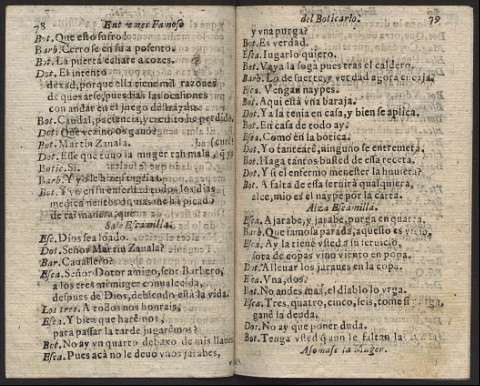 78 Entremes Famoso
Bot. Que esto sufro!
Barb. Cerrose en su aposento.
Bot. La puerta echare a cozes.
Dot. El intento
dexad, porque ella tiene mil razones
de quexarse, pues dais las ocasiones
con andar en el juego
Bot. Caudal, paciencia, y credito he perdido.
Dot. Que vezino os ganò?
Bot. Martin Zavala.
Dot. Esse que tuvo la muger tan mala
Botic. Si.
Barb. Y
Bot. Y yo en su enfermedad todos los dias
medicamentos
de tal manera, que
Sale Escamilla.
Esc. Dios sea loado.
Dot. Señor Martin Zavala?
Bar. Cavallero?
Esca. Señor Dotor amigo, seor Barbero,
a los tres mi muger convalecida,
despues de Dios, debiendo està la vida.
Los tres. A todos nos honrais.
Esca. Y bien que harèmos,
para passar la tarde jugarèmos?
Bot. No ay un quarto debaxo de mis llaves
Esca. Pues acà no le devo unos jarabes,
del Boticario. 79
y una purga?
Bot. Es verdad.
Esca. Iugarlo quiero.
Bot. Vaya la soga pues tras el caldero.
Barb. Lo de suerte, y verdad agora encaja.
Esca. Vengan naypes.
Bot. Aqui està una baraja.
Dot. Ya la tenia en casa, y bien se aplica.
Bot. En casa de todo ay.
Esca. Como en la botica.
Dot. Yo tantearè, ninguno se entremeta,
Bot. Haga tantos busted de essa receta.
Dot. Y si el enfermo menester la huviera?
Bot. A falta de essa servirà qualquiera,
alce, mio es el naype por la carta.
Alça Escamilla.
Esca. A jarabe, y jarabe, purga en quarta.
Barb. Que famosa parada, aquello es vicio,
Esca. Ay la tiene usted a su servicio,
sota de copas vino viento en popa.
Dot. Allenar los jaraues en la copa.
Esca. Una, dos.
Bot. No andes mas, el diablo lo urga.
Esca. Tres, quatro, cinco, seis, tome si purga,
ganè la deuda.
Dot. No ay que poner duda.
Bot. Tenga usted que le faltan la
Assomase la Muger.